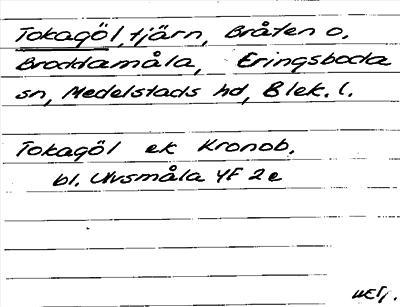 Tokagöl, tjärn, Bråten o.
Broddamåla, Eringsboda
sn, Medelstads hd, Blek. l.
Tokagöl ek Kronob.
bl. Ulvsmåla 4F 2e